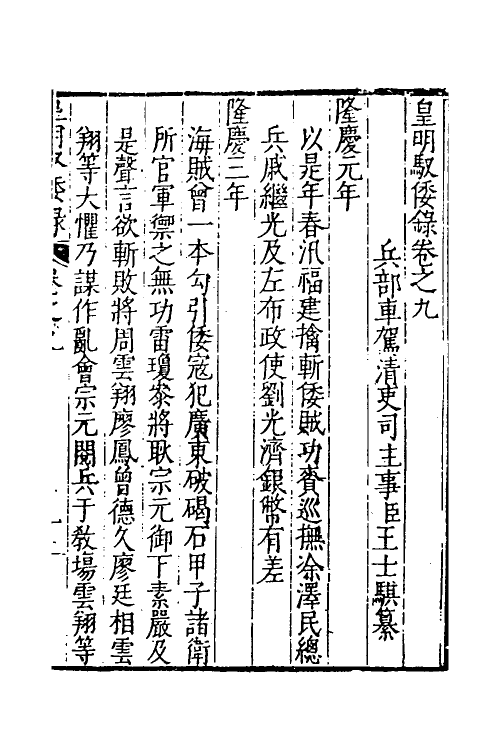 皇明馭倭錄卷之九
兵部車駕清吏司主事臣王士騏纂
隆慶元年
以是年春汛福建擒斬倭賊功賚巡撫凃澤民總
兵戚繼光及左布政使劉光濟銀幣有差
隆慶三年
海賊曾一本勾引倭寇犯廣東破碣石甲子諸衛
所官軍禦之無功雷瓊叅將耿宗元御下素嚴及
是聲言欲斬敗將周雲翔廖鳳曾德久廖廷相雲
翔等大懼乃謀作亂會宗元閱兵于敎塲雲翔等
皇明馭倭錄 卷之九